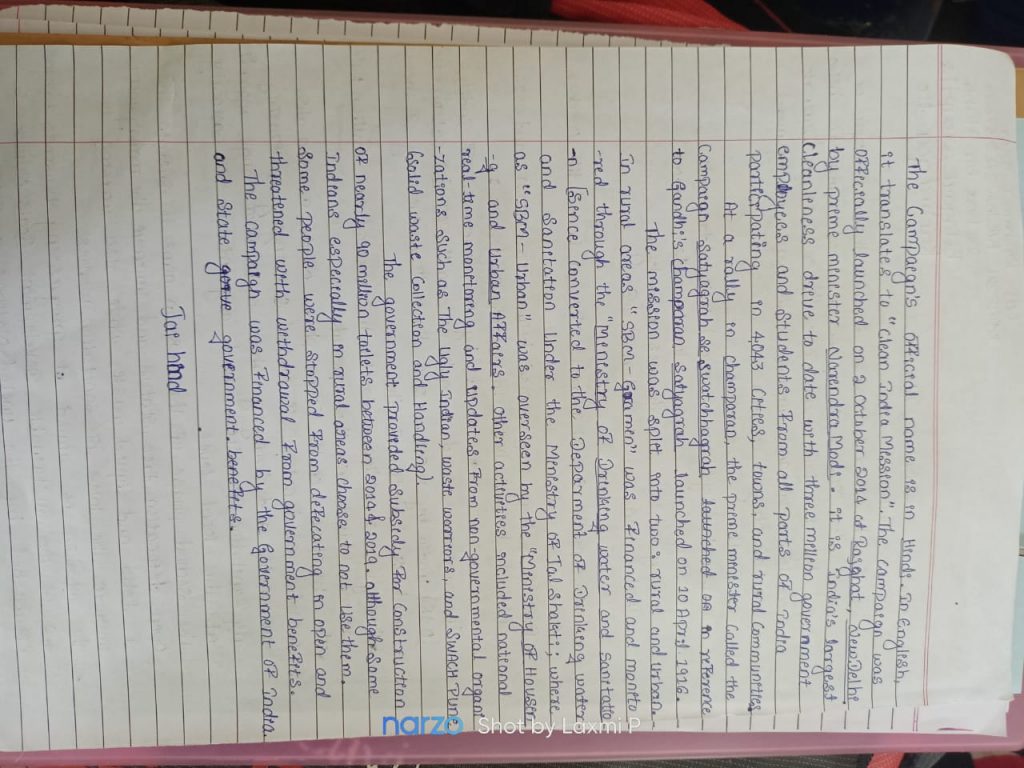 The Campaegn's official name is in Hindi. In English,
it translates to "Clean India Mession". The campaegn was
officeally launched on 2 October 2014 at Rajghat, New Delhe
by preme menester Narendra Modi. It is India's largest
cleanleness dreve to date with three mellion government
employees and students from all parts of India
parteepating in 4,043 Cities, towns, and rural Communities
At a rally in champaran, the prime menester called the
Campaegn satyagrah se swatchagrah launched in reference
to Gandhi's champaran satyagrah launched on 10 April 1916.
The mission was split into two: rural and urban.
In rural areas "SBM - Grammen" was financed and moneto
-red through the "Menestry of Drinking water and sanitatio
-n (Since converted to the Deparment of Drinking water
and Sanitation Under the Menestry of Jal shakti; where
as "SBM - Urban" was overseen by the "Menestry of Housen
-g and Urban Affaers. other activities included national
real-time monetoring and updates from non-governmental organ
-zations such as The Ugly Indian, waste worrors, and SWACH Pune
(Solid waste Collection and Handling)
The government proveded subsidy for Construction
of nearly 90 million toilets between 2014 & 2019, although some
Indians especially in rural areas choose to not use them.
Some people were stopped from defecating in open and
threatened with withdrawal from government benefits.
The campaign was Financed by the Government of India
and State government. benefits.
Jai hind
narzo Shot by Laxmi P